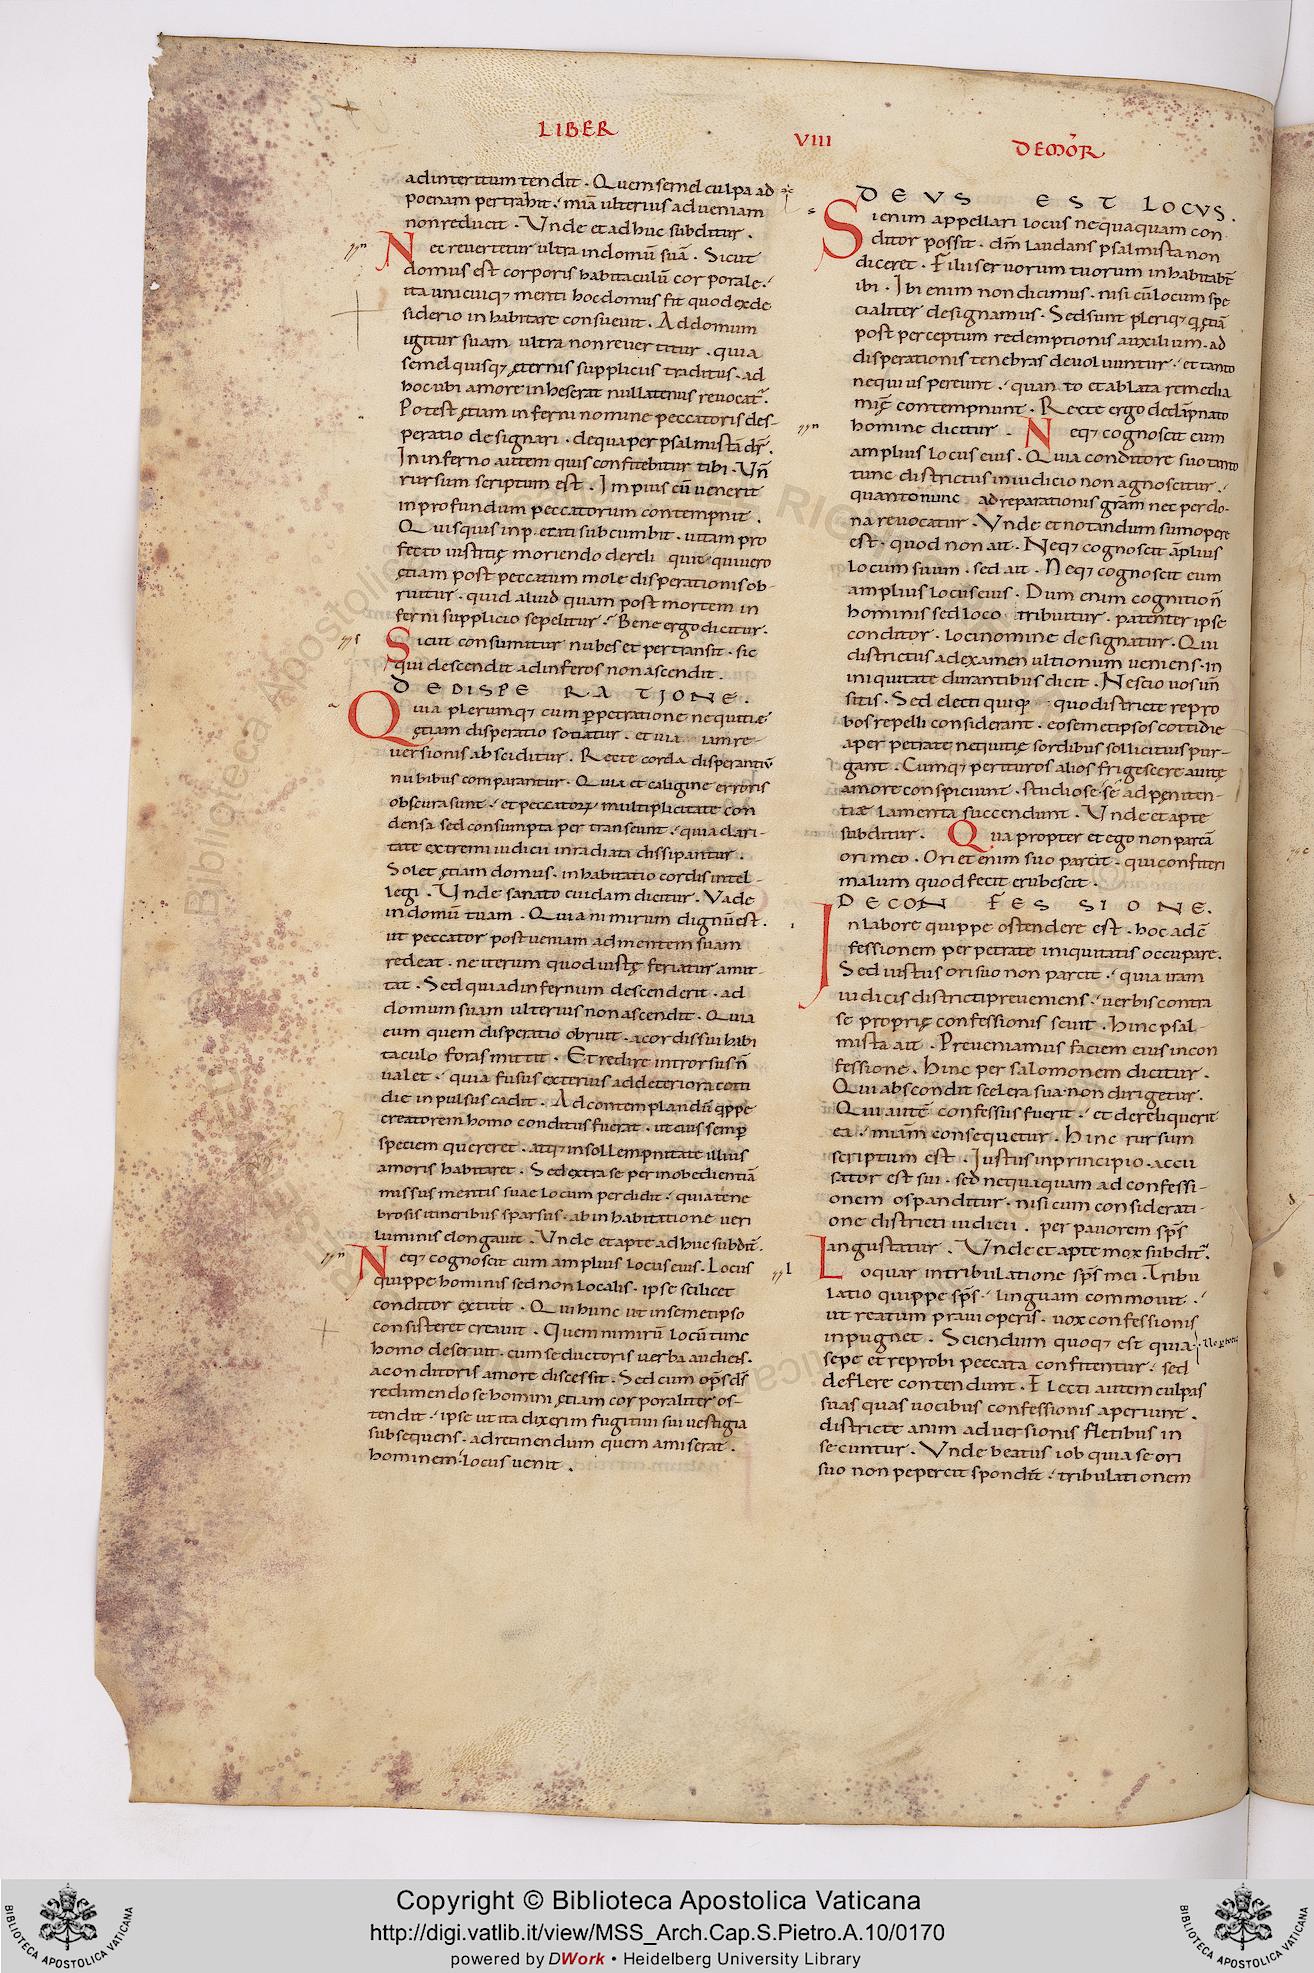 LIBER VIII DEMOR̃
ad interitum tendit . Quem semel culpa ad
poenam pertrahit . miã ulterius ad veniam
non reducit . Unde et adhuc subditur .
Nec revertetur ultra in domũ suã . Sicut
domus est corporis habitaculũ corporale .
ita unicuiq; menti hoc domus fit quod ex de
siderio inhabitare consuevit . Ad domum
igitur suam ultra non revertitur . quia
semel quisq; ęternis suppliciis traditus . ad
hoc ubi amore inheserat nullatenus revocat̃ .
Potest ętiam inferni nomine peccatoris des-
peratio designari . de qua per psalmistã dr̃ .
In inferno autem quis confitebitur tibi . Uñ
rursum scriptum est . Impius cũ venerit
in profundum peccatorum contempnit .
Quisquis inpietati subcumbit . vitam pro
fecto iustitię moriendo dereliquit . qui vero
ętiam post peccatum mole disperationis ob-
ruitur . quid aliud quam post mortem in
ferni supplicio sepelitur . Bene ergo dicitur .
Sicut consumitur nubes et pertransit . sic
qui descendit ad inferos non ascendit .
DE DISPERATIONE .
Quia plerumq; cum perpetratione nequitiæ
ętiam disperatio sotiatur . et via iam re-
versionis absciditur . Recte corda disperantiũ
nubibus comparantur . Quia et caligine erroris
obscura sunt . et peccatorũ multiplicitate con
densa sed consumpta pertranseunt . quia clari-
tate extremi iudicii inradiata dissipantur .
Solet ętiam domus . inhabitatio cordis intel-
legi . Unde sanato cuidam dicitur . Vade
in domũ tuam . Quia nimirum dignũ est .
ut peccator post veniam ad mentem suam
redeat . ne iterum quod iustę feriatur amit-
tat . Sed qui ad infernum descenderit . ad
domum suam ulterius non ascendit . Quia
eum quem disperatio obruit . a cordis sui habi
taculo foras mittit . Et redire introrsus ñ
valet . quia fusus exterius ad deteriora coti
die inpulsus cadit . Ad contemplandũ quippe
creatorem homo conditus fuerat . ut eius semper
speciem quereret . atq; in sollempnitate illius
amoris habitaret . Sed extra se per inobedientiã
missus mentis suae locum perdidit . quia tene
brosis itineribus sparsus . ab inhabitatione veri
luminis elongavit . Unde et apte adhuc subdit̃ .
Neq; cognoscit eum amplius locus eius . Locus
quippe hominis sed non localis . ipse scilicet
conditor extitit . Qui hunc ut in semetipso
consisteret creavit . Quem nimirũ locũ tunc
homo deseruit . cum seductoris verba audiens .
a conditoris amore discessit . Sed cum oṗs d̃s
redimendo se homini ętiam corporaliter os-
tendit . ipse ut ita dixerim fugitivi sui vestigia
subsequens . ad retinendum quem amiserat .
hominem . locus venit .
DEVS EST LOCVS .
Si enim appellari locus nequaquam con
ditor possit . dm̃ laudans psalmista non
diceret . Filii servorum tuorum inhabitabt̃
ibi . Ibi enim non dicimus . nisi cũ locum spe
cialiter designamus . Sed sunt pleriq; q̃ ętiã
post perceptum redemptionis auxilium . ad
disperationis tenebras devoluuntur . et tanto
nequius pereunt . quanto et ablata remedia
mię contempnunt . Recte ergo de dãpnato
homine dicitur . Neq; cognoscit eum
amplius locus eius . Quia conditore suo tanto
tunc districtius in iudicio non agnoscitur .
quanto nunc ad reparationis gram̃ nec per do-
na revocatur . Unde et notandum sumopere
est . quod non ait . Neq; cognoscit ãplius
locum suum . sed ait . Neq; cognoscit eum
amplius locus eius . Dum enim cognitioñ
hominis sed loco tribuitur . patenter ipse
conditor . loci nomine designatur . Qui
districtus ad examen ultionum veniens . in
iniquitate durantibus dicit . Nescio vos uñ
sitis . Sed electi quiq; quo districte repro
bos repelli considerant . eo semetipsos cottidie
a perpetrate nequitię sordibus sollicitius pur-
gant . Cumq; perituros alios frigescere a vitę
amore conspiciunt . studiose se ad pęniten-
tiæ lamenta succendunt . Unde et apte
subditur . Quapropter et ego non parcã
ori meo . Ori et enim suo parcit . qui confiteri
malum quod fecit erubescit .
DE CONFESSIONE .
In labore quippe ostendere est . hoc ad cõ
fessionem perpetrate iniquitatis occupare .
Sed iustus ori suo non parcit . quia iram
iudicis districti preveniens . verbis contra
se proprię confessionis sevit . Hinc psal-
mista ait . Preveniamus faciem eius in con
fessione . Hinc per salomonem dicitur .
Qui abscondit scelera sua non dirigetur .
Qui autẽ confessus fuerit . et dereliquerit
ea . miam̃ consequetur . Hinc rursum
scriptum est . Iustus in principio . accu
sator est sui . sed nequaquam ad confessi-
onem os panditur . nisi cum considerati-
one districti iudicii . per pavorem sp̃s
angustatur . Unde et apte mox subdit̃ .
Loquar in tribulatione sp̃s mei . Tribu
latio quippe sp̃s . linguam commovit .
ut reatum pravi operis . vox confessionis
inpugnet . Sciendum quoq; est quia
sepe et reprobi peccata confitentur . sed
deflere contendunt . Electi autem culpas
suas quas vocibus confessionis aperiunt .
districte animadversionis fletibus in
secuntur . Unde beatus iob quia se ori
suo non pepercit spondit̃ . tribulationem
Copyright © Biblioteca Apostolica Vaticana
http://digi.vatlib.it/view/MSS_Arch.Cap.S.Pietro.A.10/0170
powered by DWork • Heidelberg University Library
BIBLIOTECA APOSTOLICA VATICANA
BIBLIOTECA APOSTOLICA VATICANA